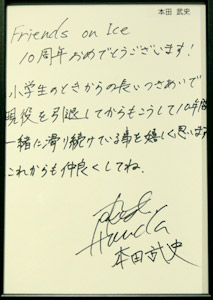 本田 武史
Friends on Ice
10周年おめでとうございます!
小学生のときからの長いつきあいで
現役を引退してからもこうして10年間
一緒に滑り続けている事を嬉しく思います
これからも仲良くしてね。
Honda
本田武史